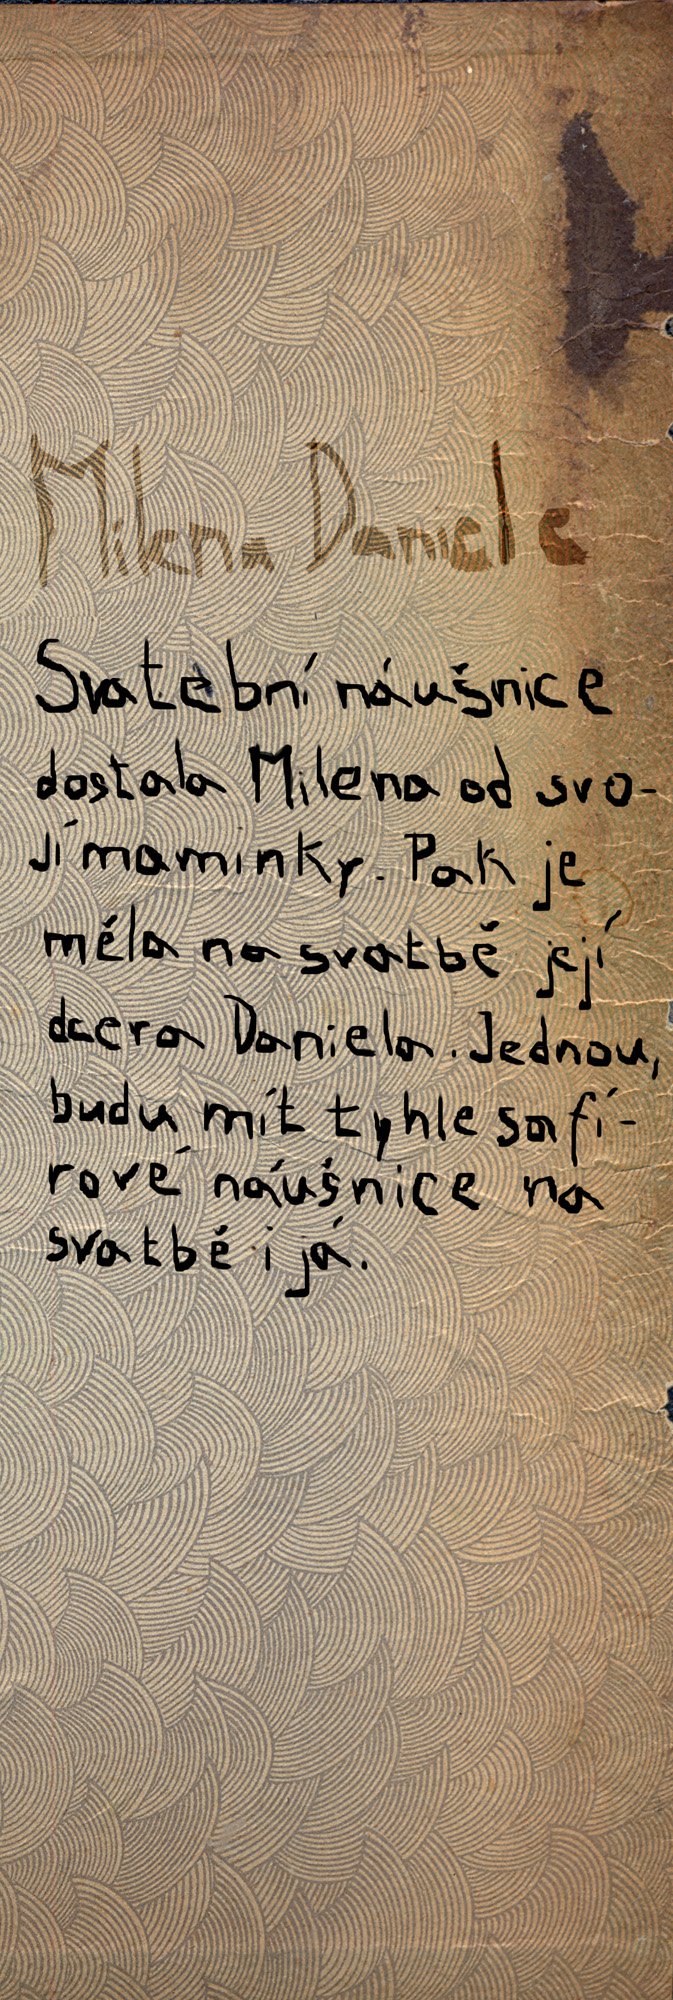 Milena Daniele
Svatební náušnice
dostala Milena od svo-
jí maminky. Pak je
měla na svatbě její
dcera Daniela. Jednou,
budu mít tyhle safí-
rové náušnice na
svatbě i já.